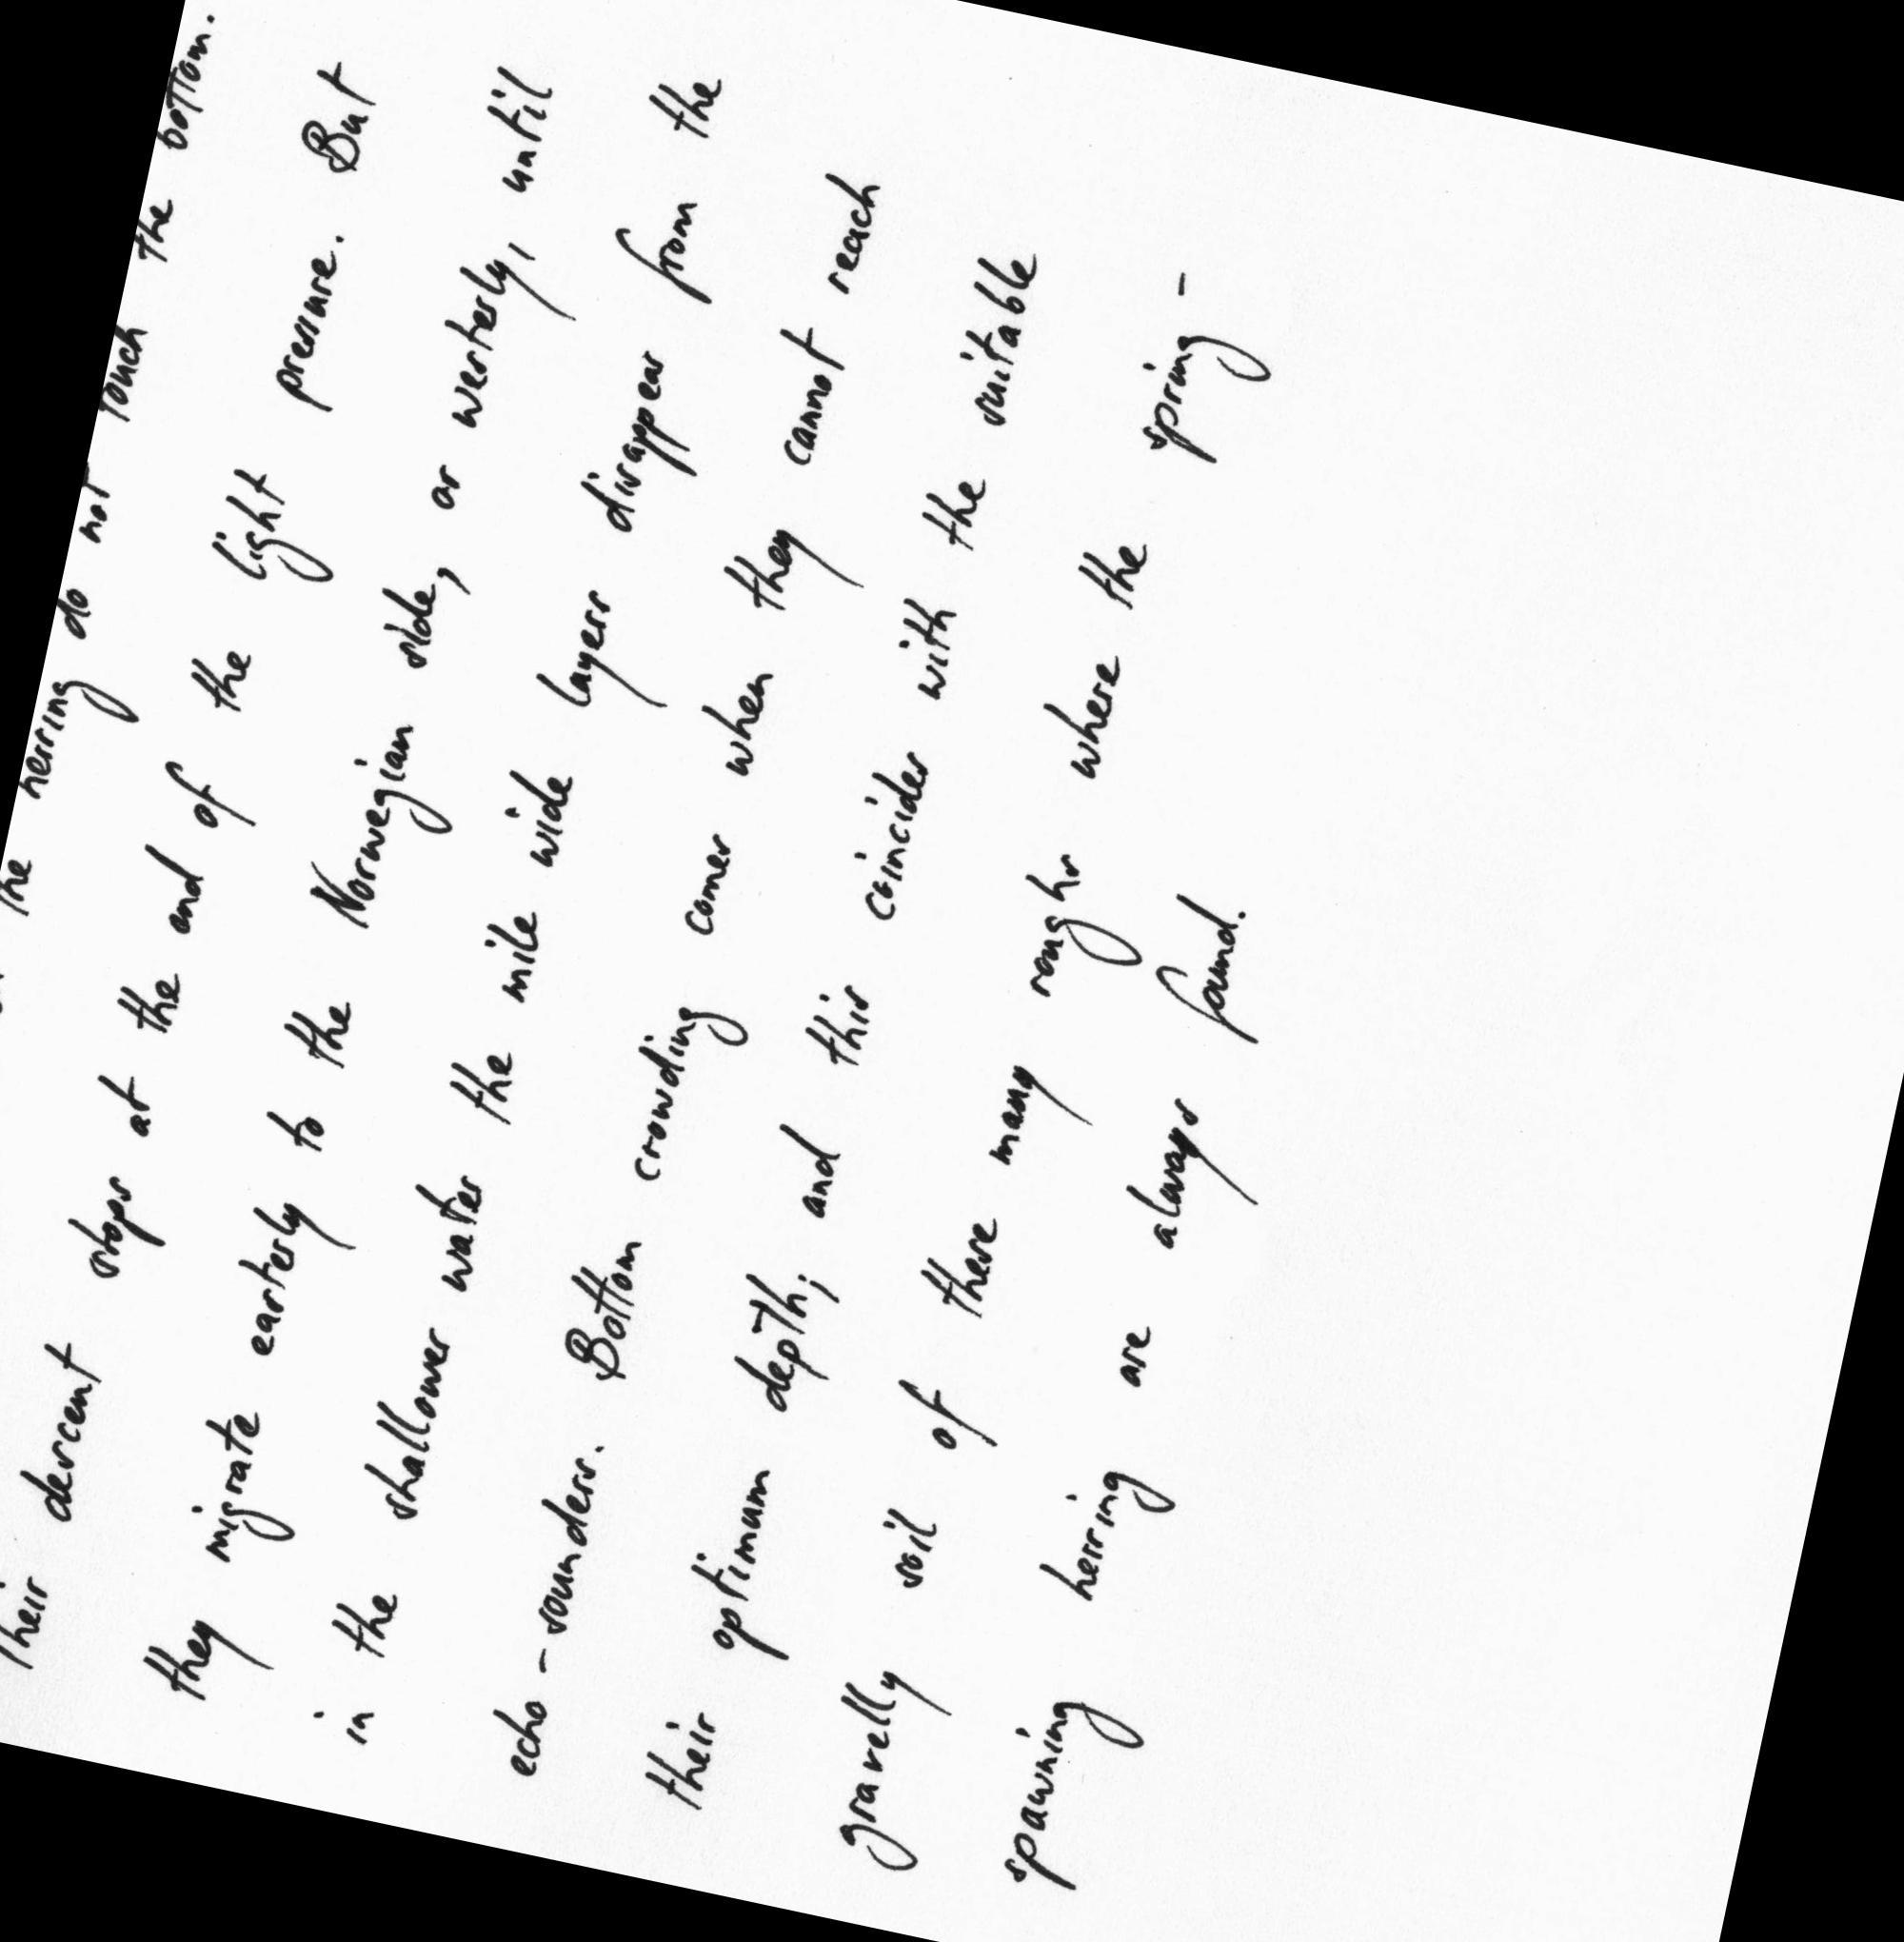 the herring do not touch the bottom.
Their descent stops at the end of the light pressure. But
they migrate easterly to the Norwegian side, or westerly, until
in the shallower water the mile wide layers disappear from the
echo-sounders. Bottom crowding comes when they cannot reach
their optimum depth; and this coincides with the suitable
gravelly soil of these many roughs where the spring-
spawning herring are always found.